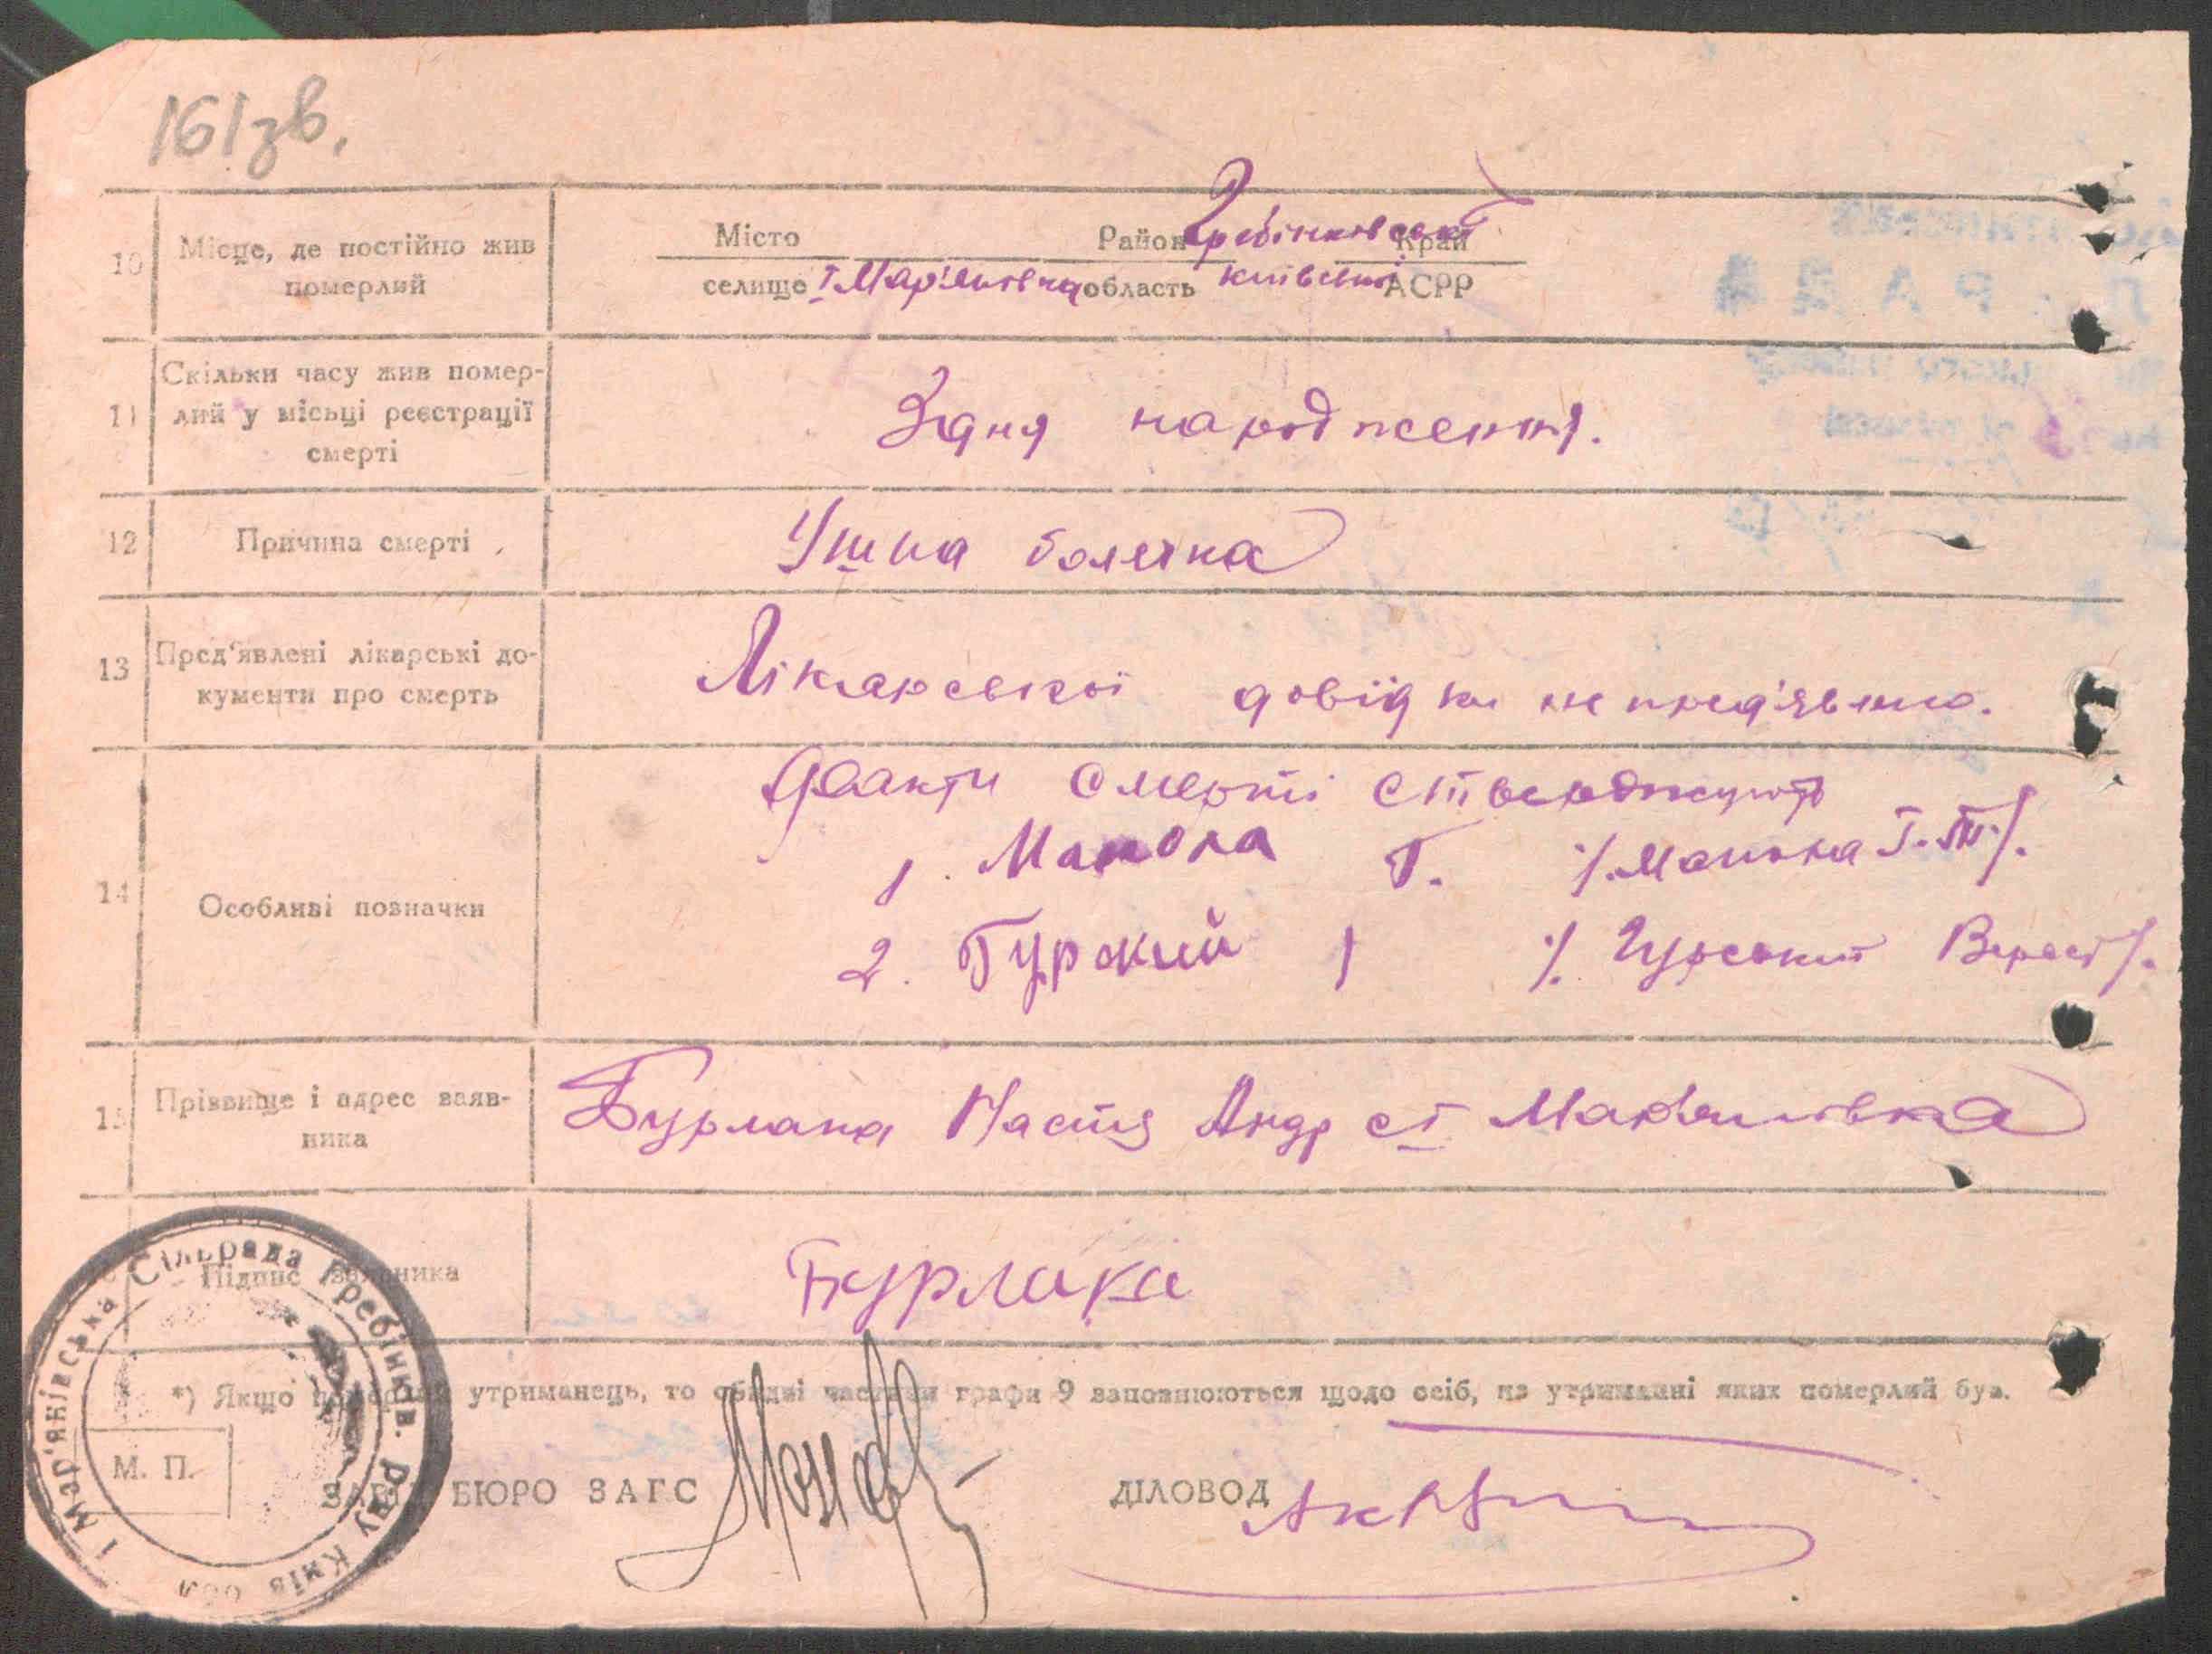 161 зв.
10 Місце, де постійно жив померлий
Місто Район Гребінковський Край
селище І Мар'янівка область Київська АСРР
11 Скільки часу жив померлий у місьці реєстрації смерті
Здня народження.
12 Причина смерті
Ушна болячка
13 Пред'явлені лікарські документи про смерть
Лікарської довідки не пред'явлено.
14 Особливі позначки
Факти смерті стверджують
1. Манога Т.
2. Гурский /. Гурський
15 Прізвище і адрес заявника
Бурлака Настя Андр с І Мар'янівка
Підпис заявника
Бурлака
*) Якщо померлий утриманець, то обидві частини графи 9 заповнюються щодо осіб, на утриманні яких померлий був.
М. П.
ЗАВ. БЮРО ЗАГС
ДІЛОВОД
І Мар'янівська Сільрада Гребінків. р-ну Київ обл